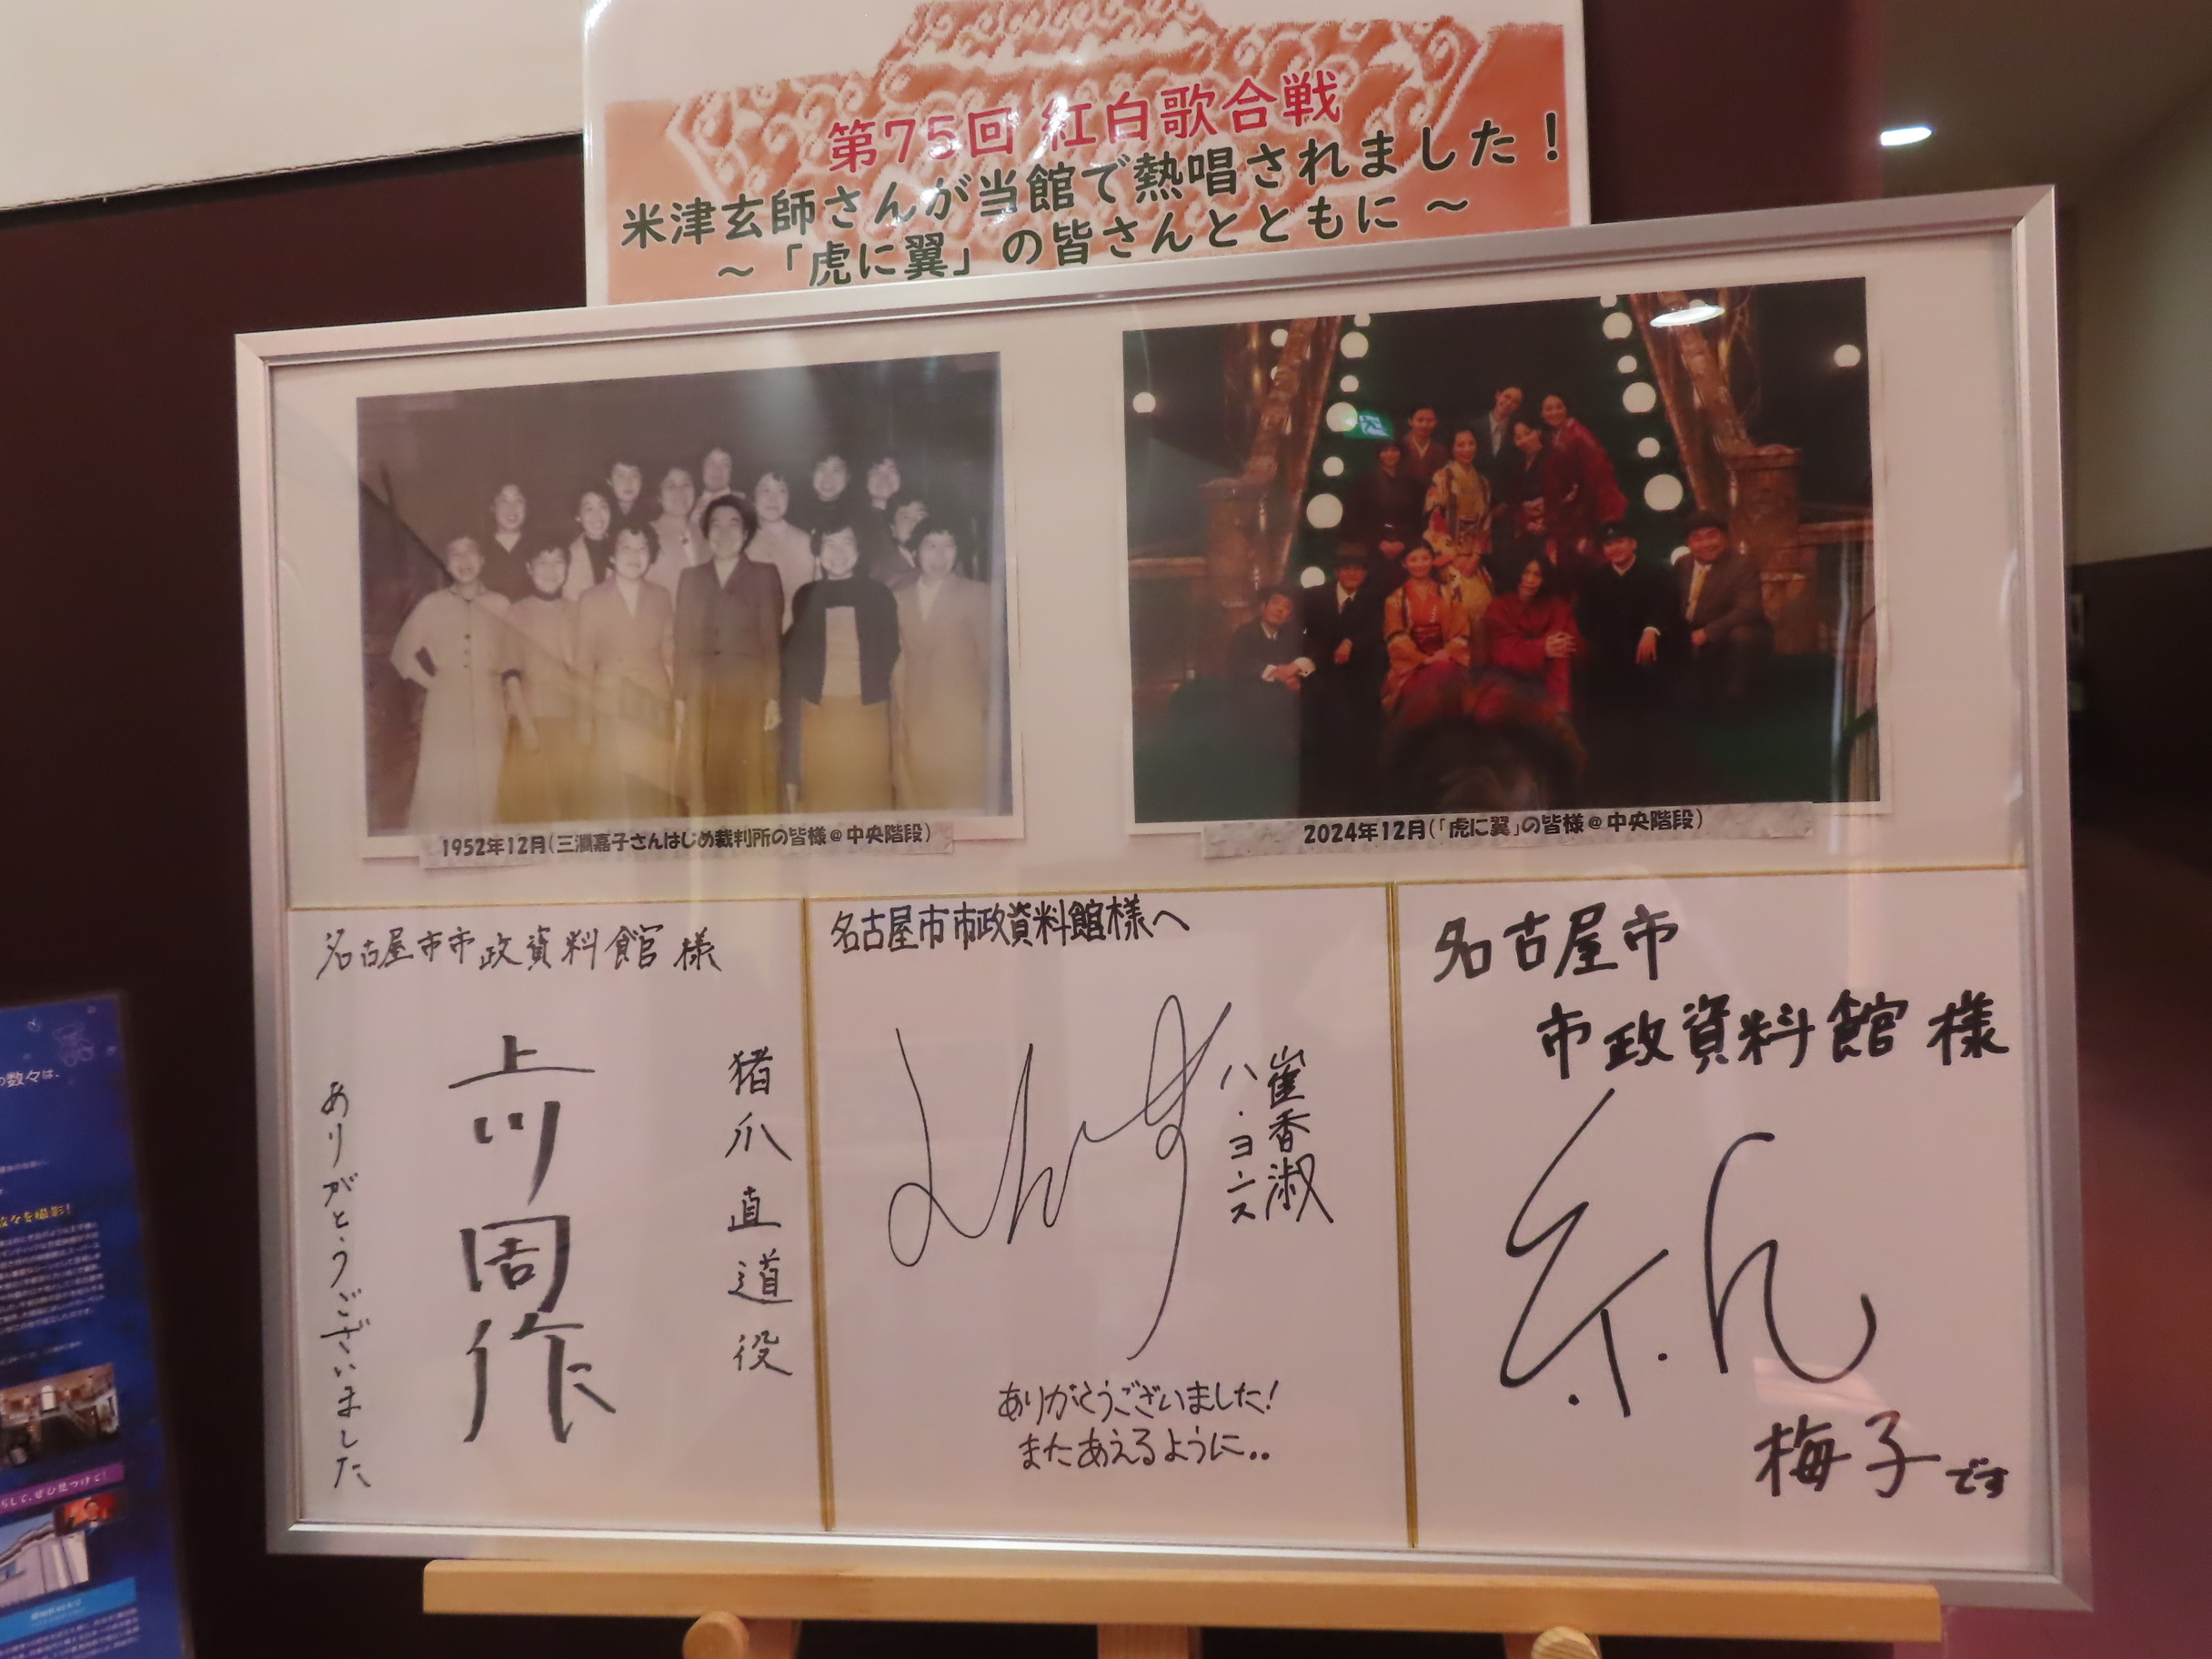 第75回 紅白歌合戦
米津玄師さんが当館で熱唱されました！
～「虎に翼」の皆さんとともに～
1952年12月(三淵嘉子さんはじめ裁判所の皆様＠中央階段)
2024年12月(「虎に翼」の皆様＠中央階段)
名古屋市市政資料館 様
猪爪直道役
上川周作
ありがとうございました
名古屋市市政資料館様へ
崔香淑
ハ・ヨンス
ありがとうございました!
またあえるように..
名古屋市
市政資料館 様
梅子です
の数々は、